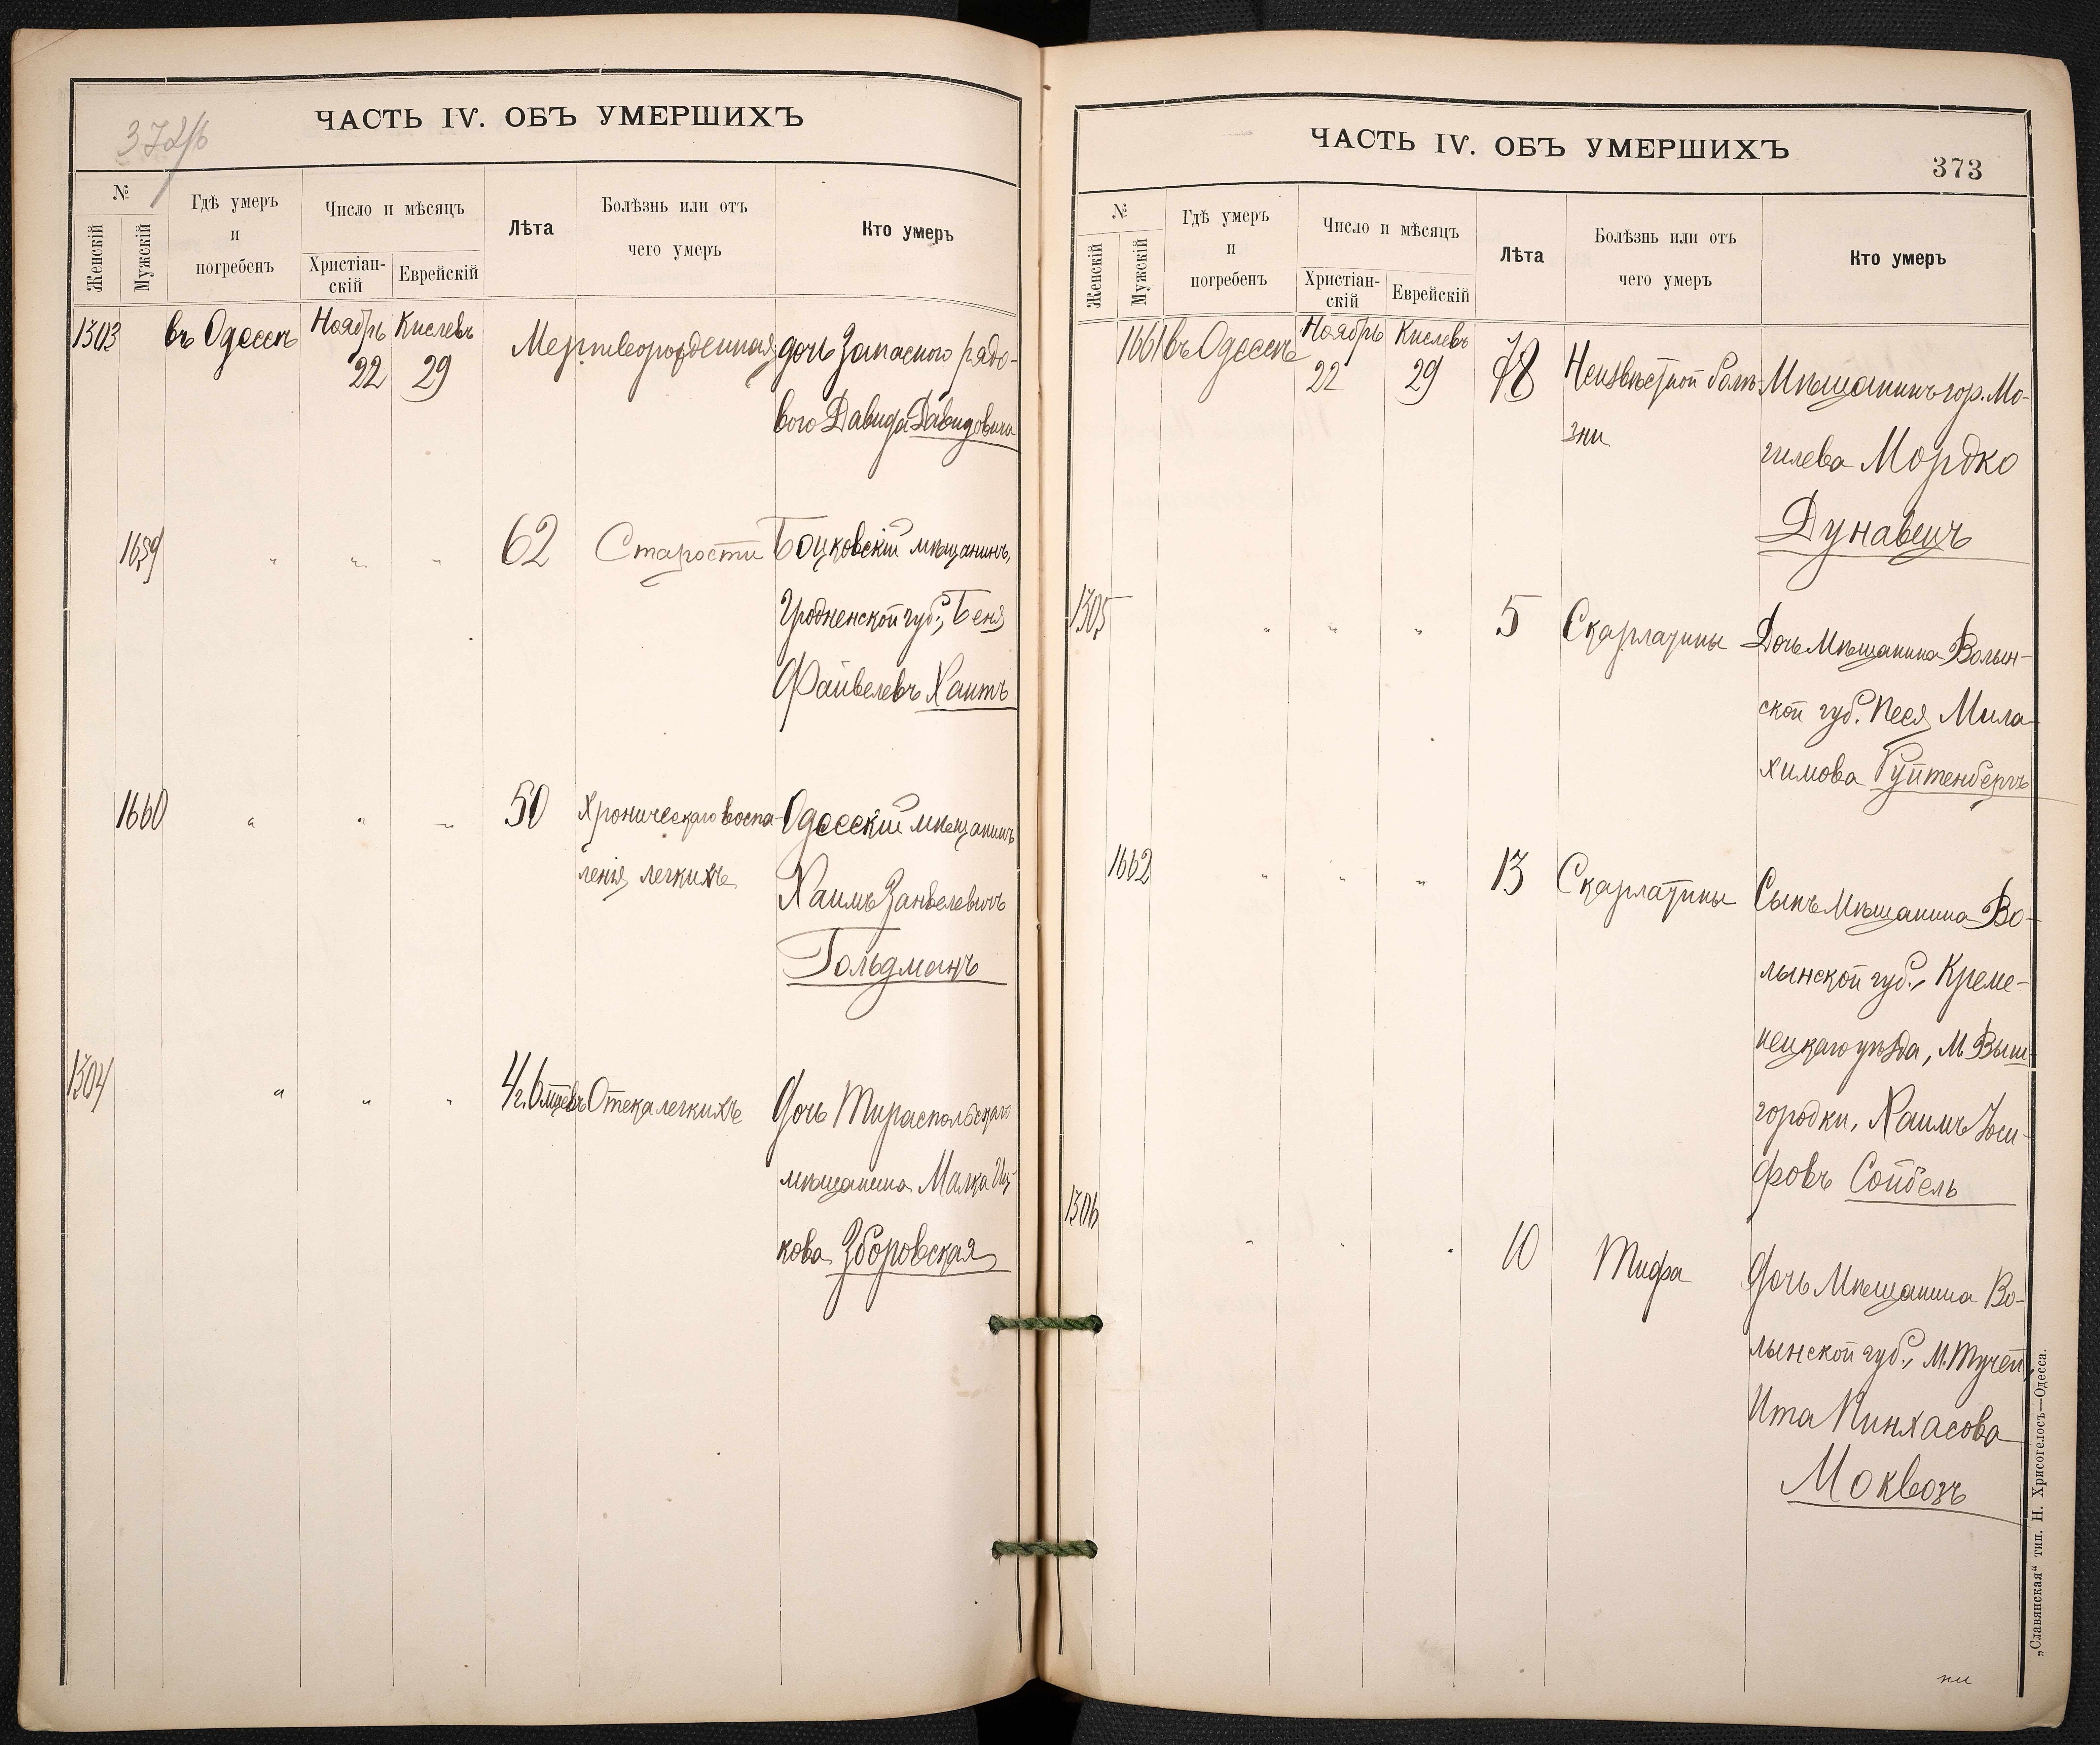 ЧАСТЬ IV. ОБЪ УМЕРШИХЪ
№
Женскій
Мужскій
Гдѣ умеръ
и
погребенъ
Число и мѣсяцъ
Христіан-
скій
Еврейскій
Лѣта
Болѣзнь или отъ
чего умеръ
Кто умеръ
1303 въ Одессѣ Ноябрь Кислевъ Мертворожденная дочь запаснаго рядо-
22 29
вого Давида Давидовича
1659 " " " 62 Старости Боцковскій мѣщанинъ,
Гродненской губ., Беня
Файвелевъ Хаитъ
1660 " " " 50 Хроническаго воспа- Одесскій мѣщанинъ
ленія легкихъ Хаимъ Занвелевичъ
Гольдманъ
1304 " " " 4 г. 6 мцевъ Отека легкихъ Дочь Тираспольскаго
мѣщанина Малка Иц-
кова Зборовская
ЧАСТЬ IV. ОБЪ УМЕРШИХЪ
373
№
Женскій
Мужскій
Гдѣ умеръ
и
погребенъ
Число и мѣсяцъ
Христіан-
скій
Еврейскій
Лѣта
Болѣзнь или отъ
чего умеръ
Кто умеръ
1661 въ Одессѣ Ноябрь Кислевъ
22 29 78 Неизвѣстной болѣ- Мѣщанинъ гор. Мо-
зни гилева Мордко
Дунавецъ
1305 " " " 5 Скарлатины Дочь Мѣщанина Волын-
ской губ. Песя Мила-
химова Гуйтенбергъ
1662 " " " 13 Скарлатины Сынъ Мѣщанина Во-
лынской губ., Креме-
нецкаго уѣзда, М. Выш-
городки, Хаимъ Іоси-
фовъ Сойбель
1306 " " " 10 Тифа Дочь Мѣщанина Во-
лынской губ., М. Тучей,
Ита Пинхасова
Моквозъ
„Славянская“ тип. Н. Хрисогелосъ—Одесса.